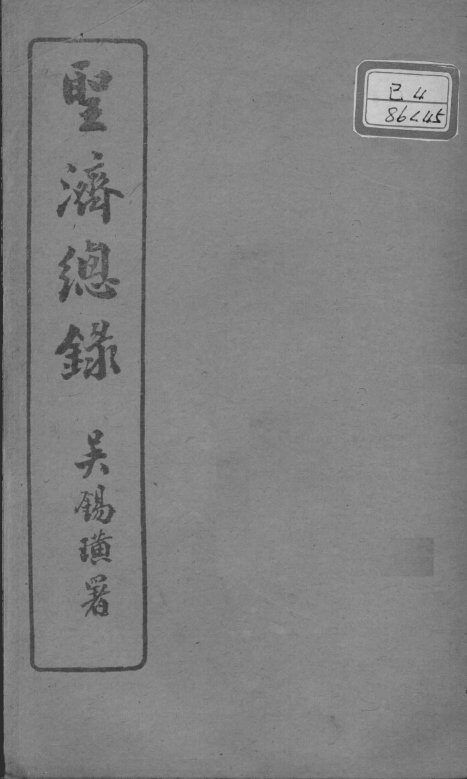 聖濟總錄
吴錫璜署
己 4
86445